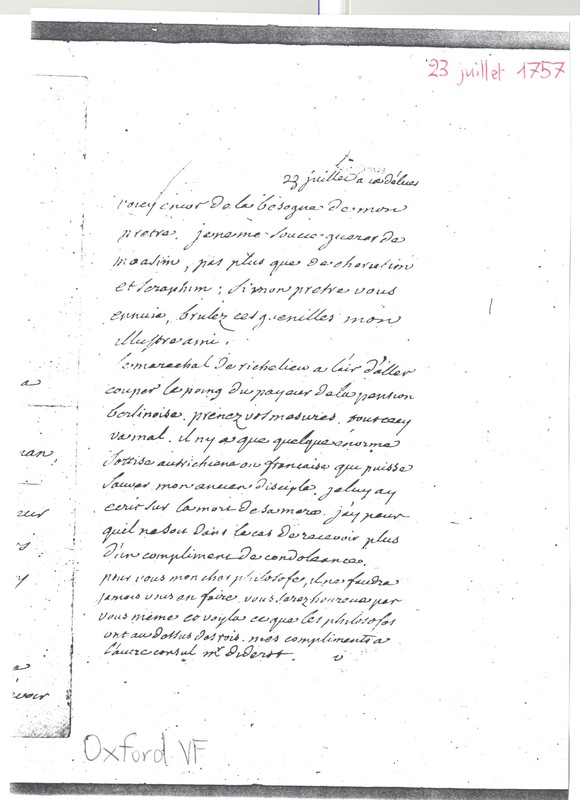 23 juillet 1757
23 juillet a ux délices
voicy encor de la besogne de mon
pretre. je ne me soucie guerer de
moasim, pas plus que de cherubin
et seraphim; si mon pretre vous
ennuie, brulez ces guenilles mon
illustre ami.
le marechal de richelieu a l'air d'aller
couper le poing du payeur de la pension
berlinoise. prenez vos mesures. tout cecy
va mal. il ny a que quelque énorme
sottise autrichiene ou francaise qui puisse
sauver mon ancien disciple. je luy ay
ecrit sur la mort de sa mere. j'ay peur
quil ne soit dans le cas de recevoir plus
d'un compliment de condoleance.
pour vous mon cher philosofe, il ne faudra
jamais vous en faire. vous serez heureux par
vous même et voyla ce que les philosofes
ont au dessus des rois. mes compliments a
l'autre consul mr diderot. v
a
ran,
eur
s
y
a
evoir
Oxford VF